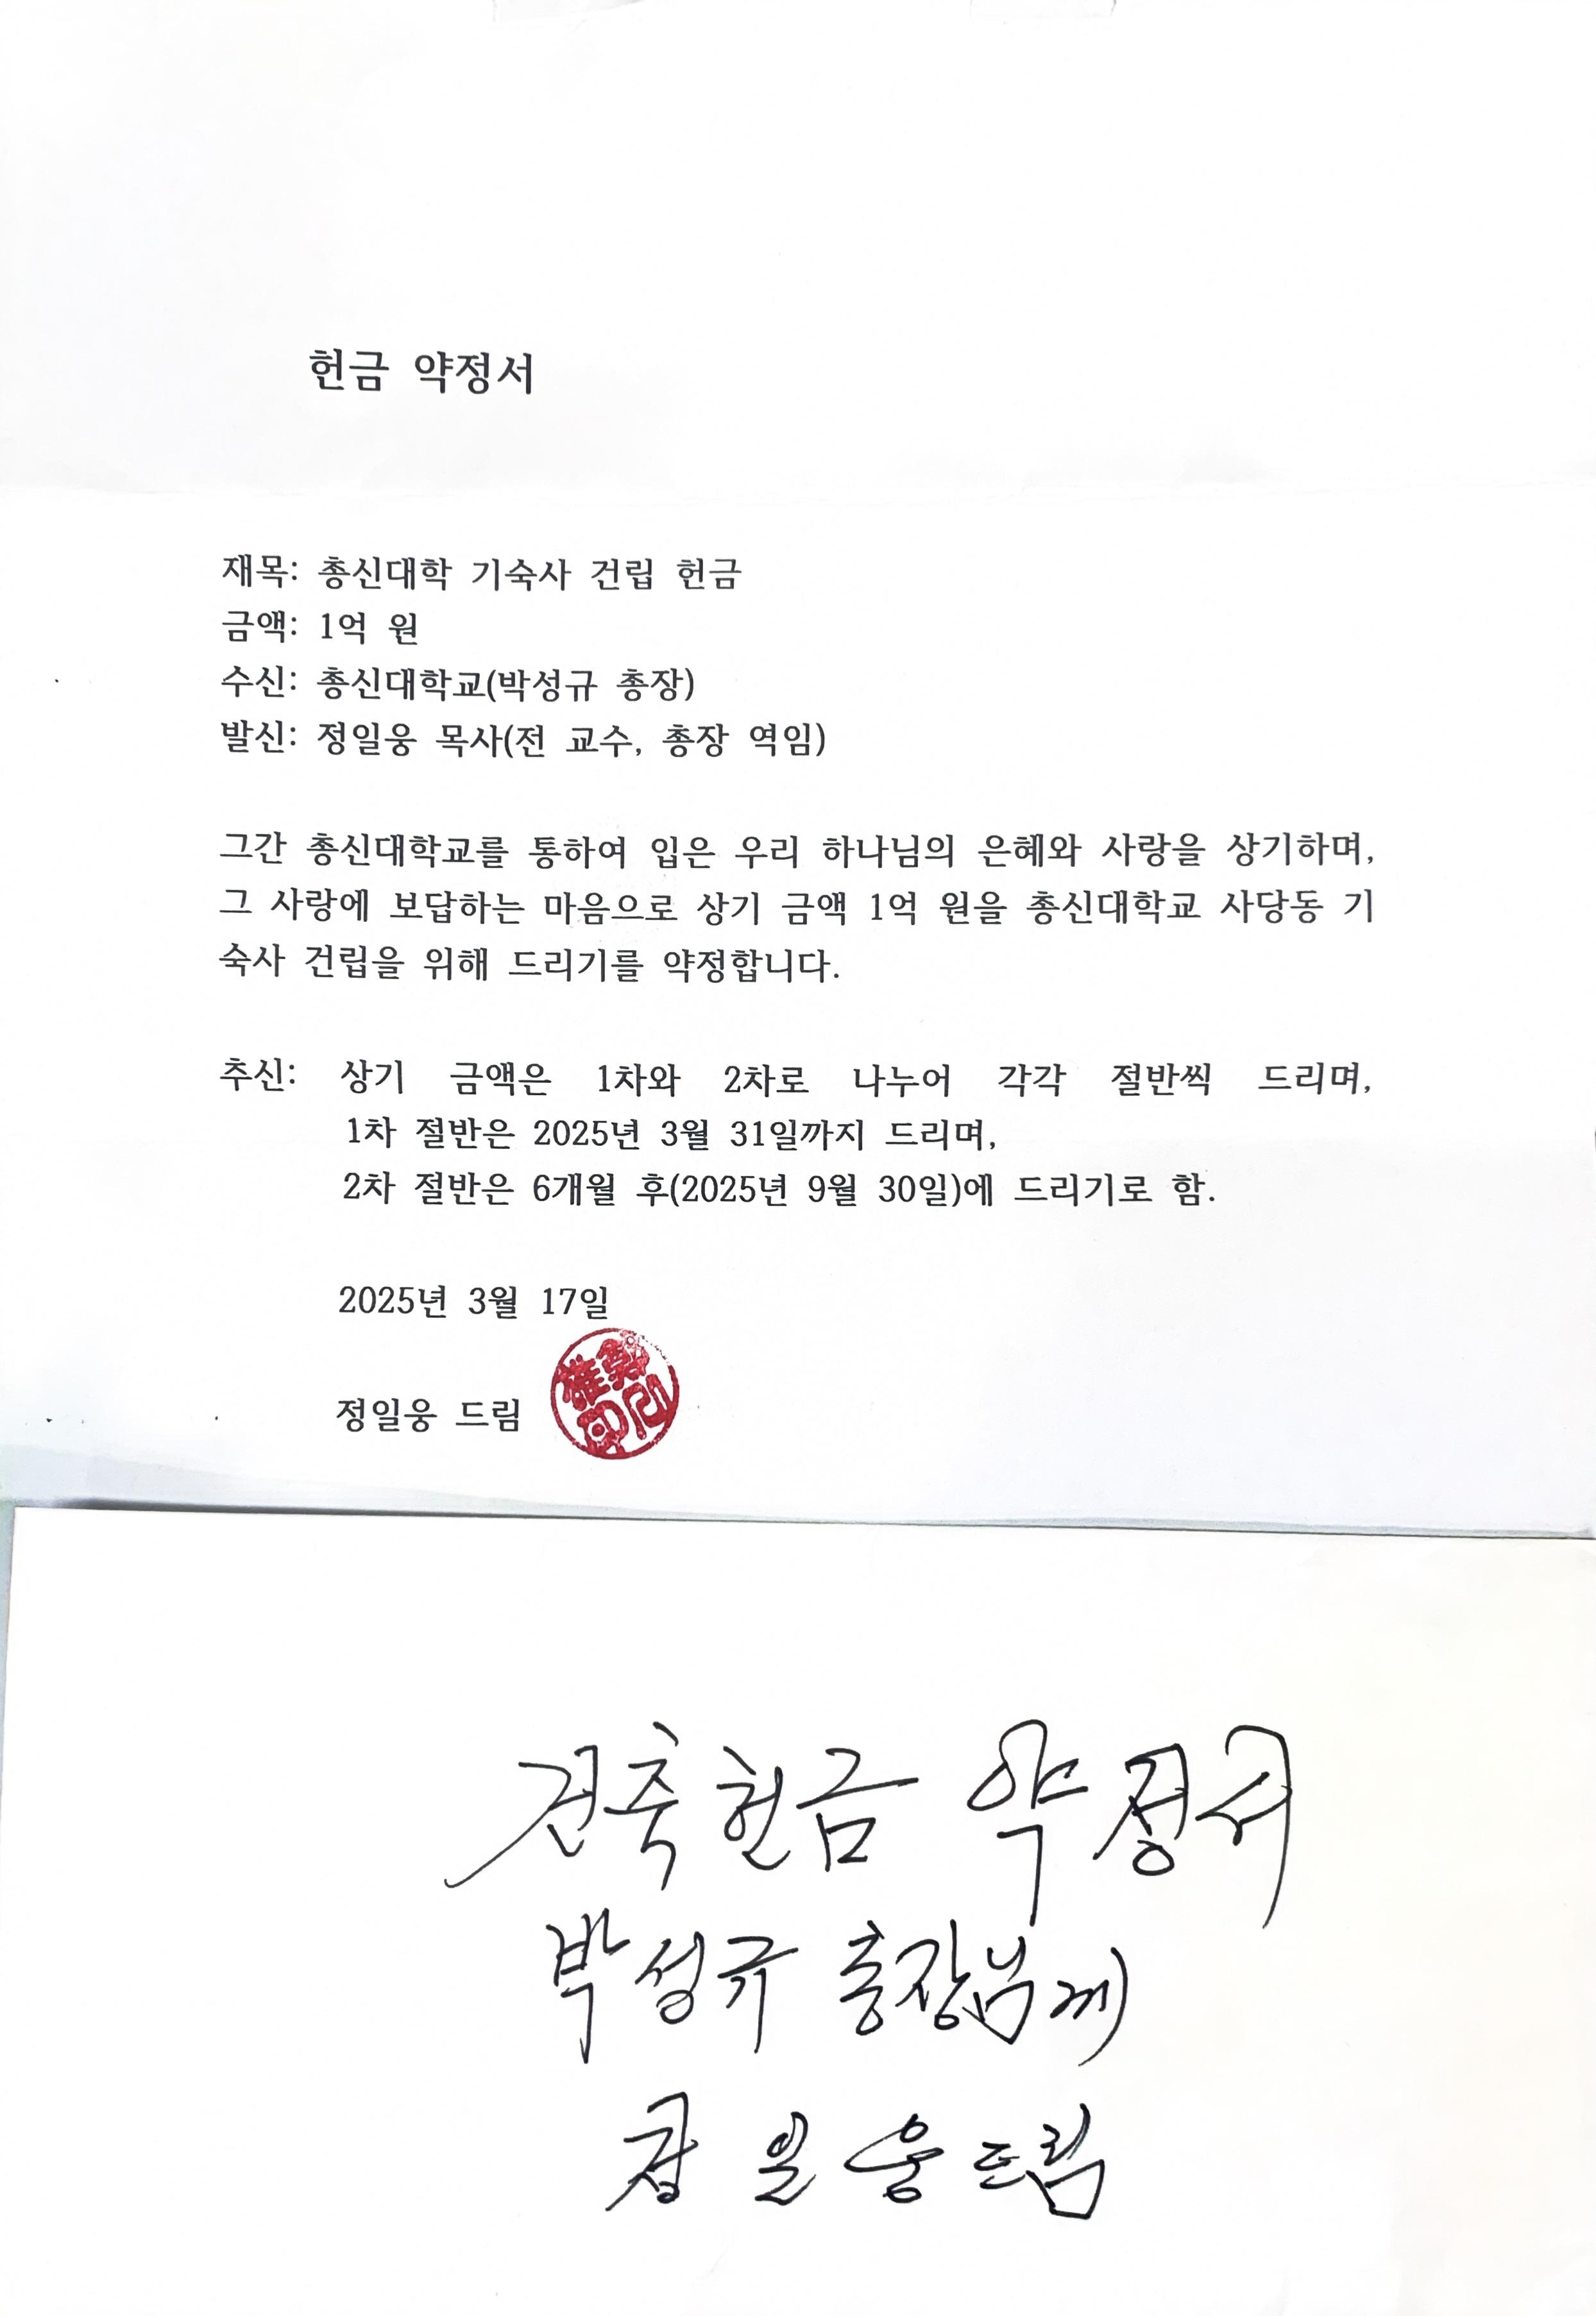 헌금 약정서
재목: 총신대학 기숙사 건립 헌금
금액: 1억 원
수신: 총신대학교(박성규 총장)
발신: 정일웅 목사(전 교수, 총장 역임)
그간 총신대학교를 통하여 입은 우리 하나님의 은혜와 사랑을 상기하며,
그 사랑에 보답하는 마음으로 상기 금액 1억 원을 총신대학교 사당동 기
숙사 건립을 위해 드리기를 약정합니다.
추신: 상기 금액은 1차와 2차로 나누어 각각 절반씩 드리며,
1차 절반은 2025년 3월 31일까지 드리며,
2차 절반은 6개월 후(2025년 9월 30일)에 드리기로 함.
2025년 3월 17일
정일웅 드림
건축헌금 약정서
박성규 총장님께
정일웅 드림